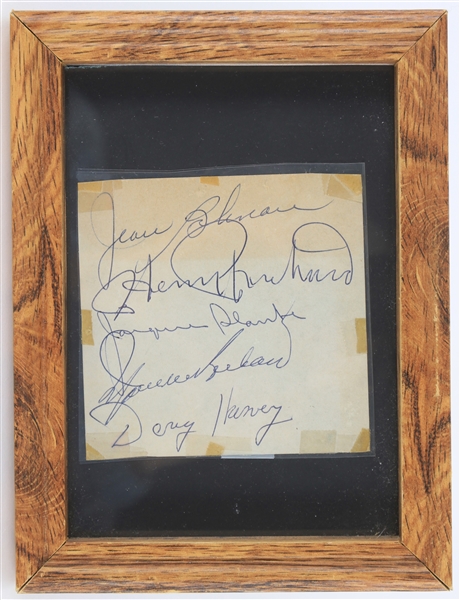 Jean Béliveau
Henri Richard
Jacques Plante
Maurice Richard
Doug Harvey